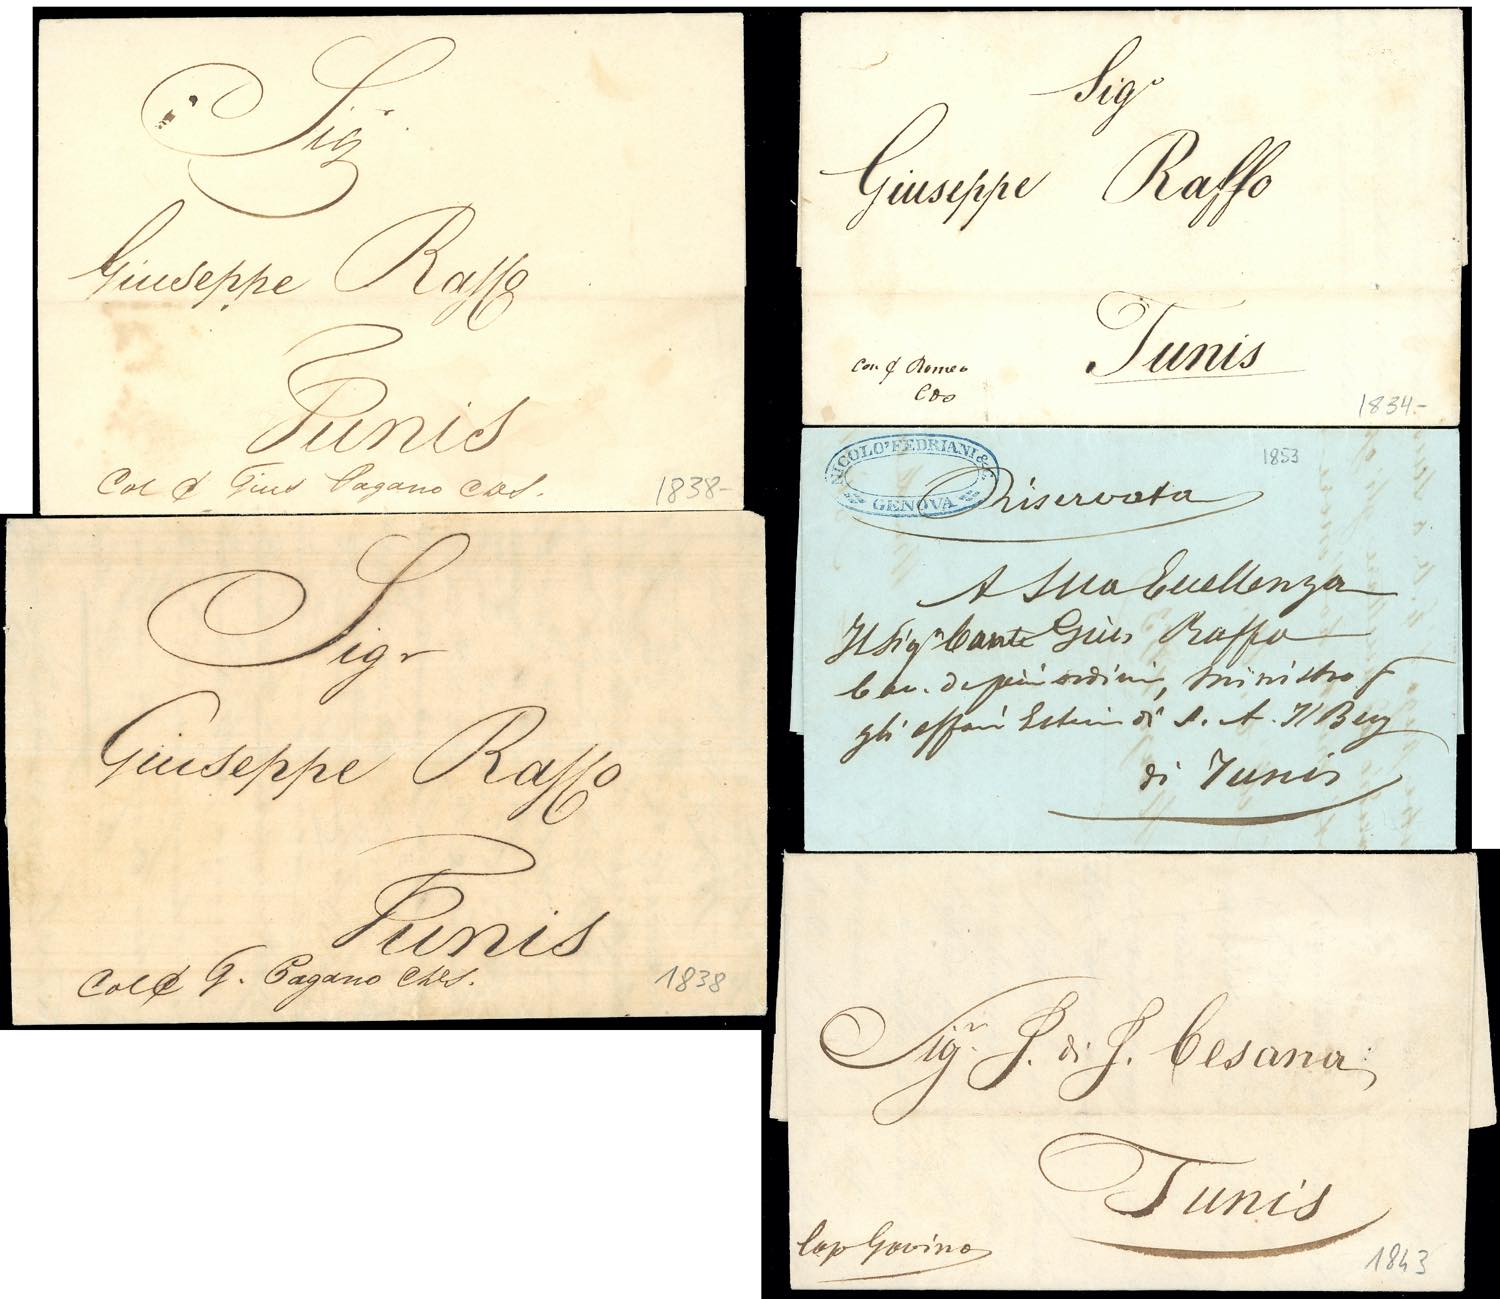 Sigr
Giuseppe Raffo
Tunis
Col ₵ Gius Pagano
1838-
Sigr
Giuseppe Raffo
Tunis
Col ₵ G. Pagano
1838
Sigr
Giuseppe Raffo
Tunis
con ₵ Romeo
1834-
NICOLO' FEDRIANI & C.
GENOVA
1853
Riservata
A Sua Eccellenza
Il Sigr Conte Gius Raffo
Cav. di più ordini, Ministro
gli affari Esteri di S. A. Il Bey
di Tunis
Sigr J. di J. Cesana
Tunis
Cap Gavino
1843